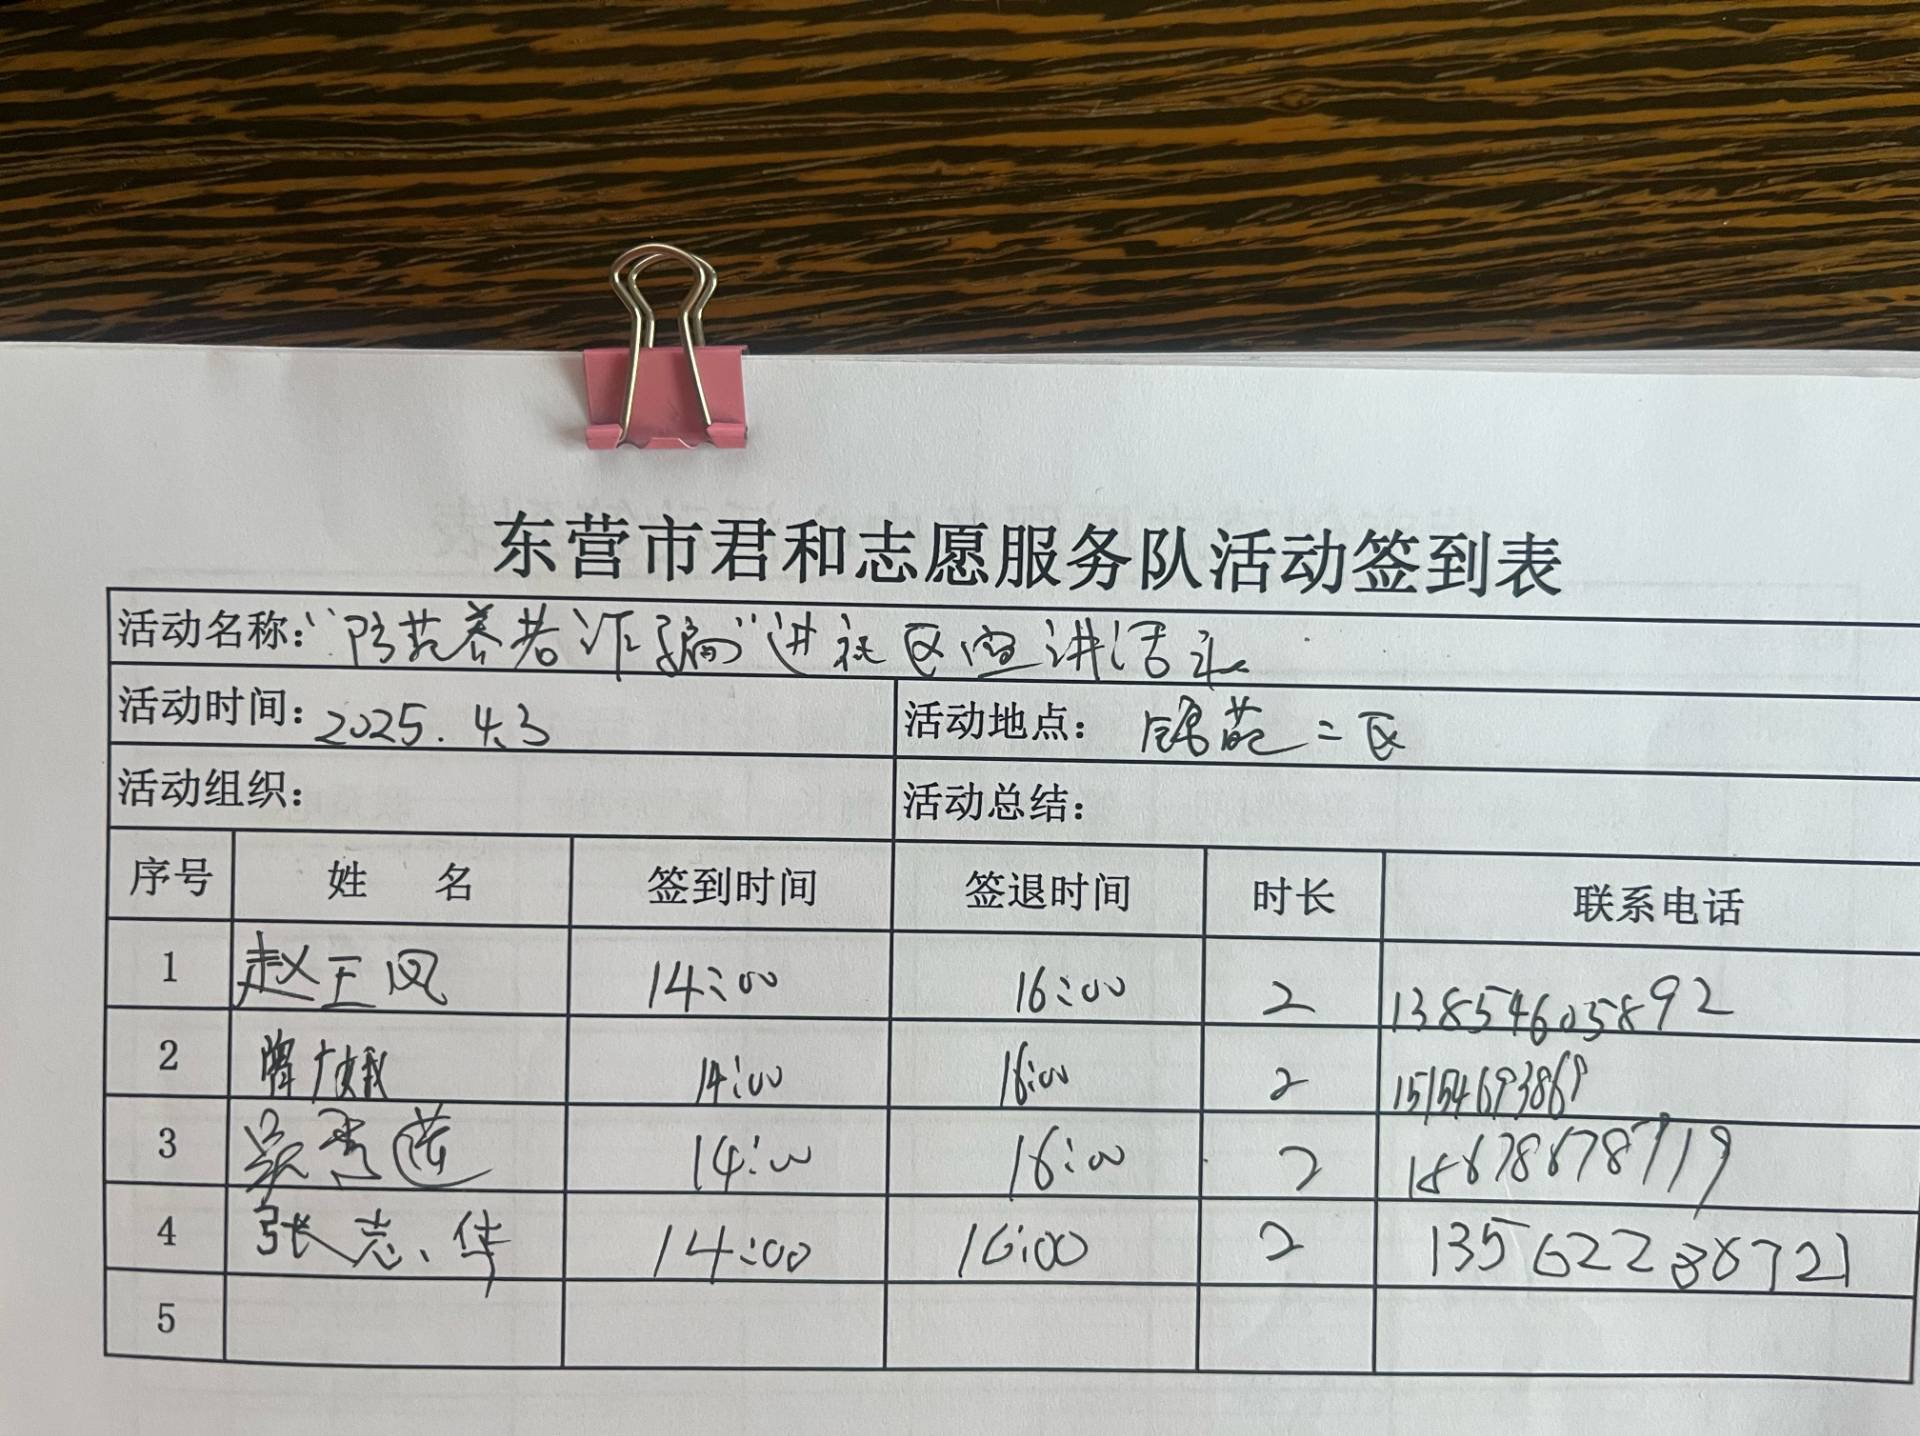 东营市君和志愿服务队活动签到表
活动名称：“防范养老诈骗”进社区宣讲活动
活动时间：2025.4.3
活动地点：苑二区
活动组织：
活动总结：
序号 姓 名 签到时间 签退时间 时长 联系电话
1 赵玉凤 14:00 16:00 2 13854605892
2 14:00 16:00 2 15154693869
3 吴秀莲 14:00 16:00 2 18678678719
4 张志华 14:00 16:00 2 13562238721
5